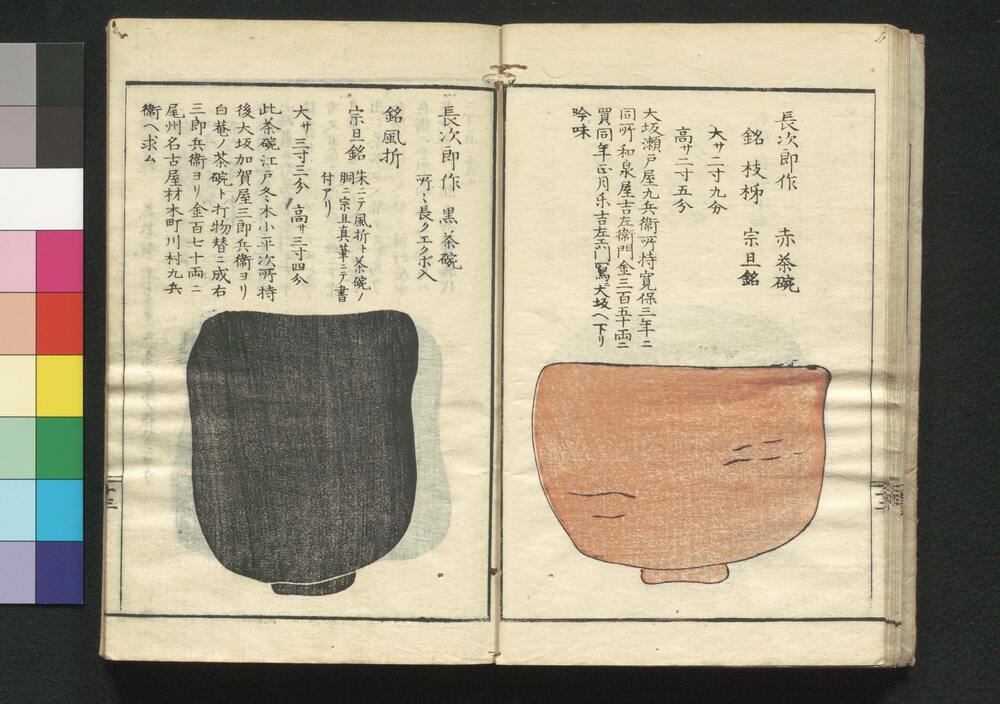 長次郎作　赤茶碗
銘　枝柹　宗旦銘
大サ二寸九分
高サ二寸五分
大坂瀬戸屋九兵衛所持寛保三年ニ
同所和泉屋吉左衛門金三百五十両ニ
買同年正月樂吉左エ門大坂ヘ下リ
吟味
長次郎作　黒茶碗
所々長クエクボ入
銘風折
宗旦銘　朱ニテ風折ト茶碗ノ
胴ニ宗旦真筆ニテ書
付アリ
大サ三寸三分　高サ三寸四分
此茶碗江戸冬木小平次所持
後大坂加賀屋三郎兵衛ヨリ
白菴ノ茶碗ト打物替ニ成右
三郎兵衛ヨリ金百七十両ニ
尾州名古屋材木町川村九兵
衛ヘ求ム